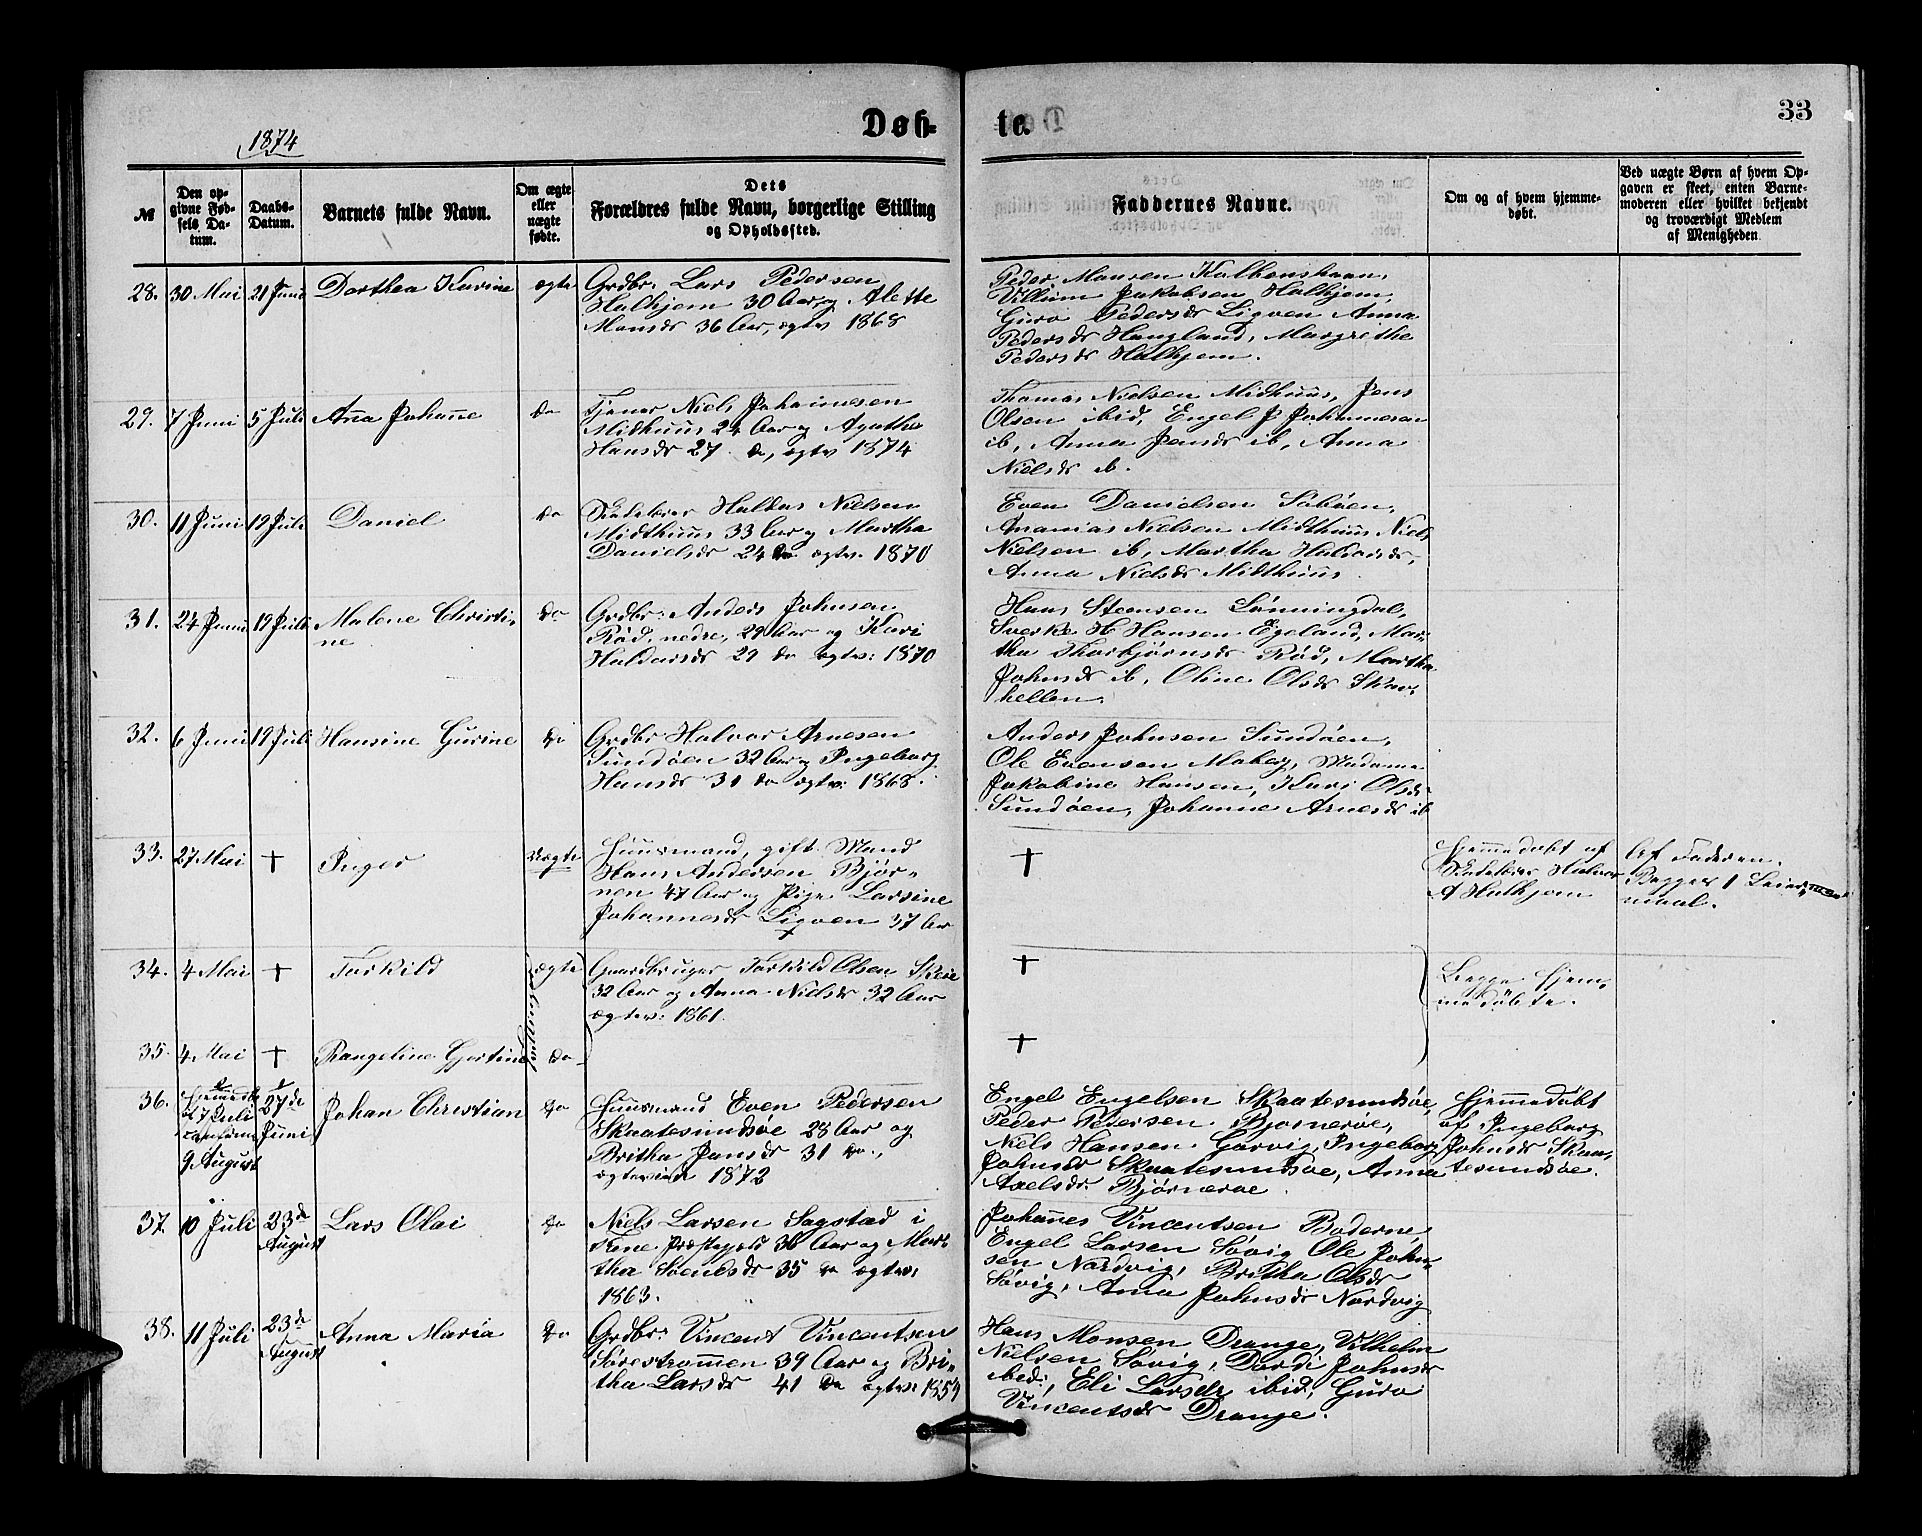 33
1874
Døb-
te.
№
Den op-
givne Fød-
sels Da-
tum.
Daabs-
Datum.
Barnets fulde Navn.
Om ægte
eller
uægte
fødte.
Dets
Forældres fulde Navn, borgerlige Stilling
og Opholdssted.
Faddernes Navne.
Om og af hvem hjemme-
døbt.
Ved uægte Børn af hvem Op-
gaven er skeet, enten Barne-
moderen eller hvilket bekjendt
og troværdigt Medlem
af Menigheden
28. 30 Mai 21 Juni Dorthea Karine ægte
Grdbr: Lars Pedersen
Halhjem 30 Aar og Alette
Monsdr 36 Aar, ægtev 1868
Peder Monsen
Villum Jakobsen Halhjem,
Guro Pedersdr Ligven Anna
Pedersdr Haugland, Margrethe
Pedersdr Halhjem.
29. 7 Juni 5 Juli Ana Johane do
Tjener Niels Johannesen
Midthuus 24 Aar og Agatha
Hansdr 27 do, ægtv 1874
Thomas Nielsen Midthuus, Jens
Olsen ibid, Engel J Johannesen
ib, Anna Jensdr ib, Anna
Nielsdr ib.
30. 11 Juni 19 Juli Daniel do
Haldor Nielsen
Midthuus 33 Aar og Martha
Danielsdr 24 do ægtev. 1870
Even Danielsen
Ananias Nielsen Midthuus Niels
Nielsen ib, Martha Haldorsdr,
Anna Nielsdr Midthuus
31. 24 Juni 19 Juli Malene Christi-
ne do
Grdbr: Anders Johnsen
Rød, nedre, 29 Aar og Kari
Haldorsdr 29 do ægtev: 1870
Hans Steensen Lønningdal,
Sverke H Hansen Egeland, Mar-
tha Thorbjørnsdr Rød, Martha
Johnsdr ib, Oline Olsdr Skar-
hellen.
32. 6 Juni 19 Juli Hansine Gurine do
Grdbr Halvor Arnesen
Sundøen 32 Aar og Ingeborg
Hansdr 31 do ægtev: 1868.
Anders Johnsen Sundøen,
Ole Evensen Moberg, Madame
Jakobine Hansen, Kari Olsdr
Sundøen, Johanne Arnesdr ib
33. 27 Mai † Inger uægte
Huusmand, gift Mand
Hans Andersen Bjør-
nen 47 Aar og Pige Larsine
Johannesdr Ligven 37 Aar
†
Hjemmedøbt af
Halvor
A Halhjem
Af Faderen.
Begges 1 Leier-
maal.
34. 4 Mai † Torkild ægte
Gaardbruger Torkild Olsen Skeie
32 Aar og Anna Nielsdr 32 Aar
ægtev: 1861.
†
Begge hjem-
medøbte.
Tvillinger
35. 4 Mai † Rangeline Gjertine do
†
36. hjemmedbt
7 Juli
9 August
27de
Juni
Johan Christian do
Huusmand Even Pedersen
Skaatesundsøe 28 Aar og
Britha Jansdr 31 do,
ægteviede 1872
Engel Engelsen Skaatesundsøe,
Peder Pedersen Bjørnerøe,
Niels Hansen Garvig, Ingeborg
Johnsdr Skaatesundsøe, Anna
Axelsdr Bjørnerøe.
Hjemmedøbt
af Ingeborg
Johnsdr Skaa-
tesundsøe.
37. 10 Juli 23de
August
Lars Olai do
Niels Larsen Sagstad i
Præstegjeld 36 Aar og Mar-
tha Svendsdr 35 do ægtev:
1863.
Johanes Vincentsen Boderne,
Engel Larsen Søvig Ole John-
sen Nordvig, Britha Olsdr
Søvig, Anna Johnsdr Nordvig
38. 11 Juli 23de
August
Anna Maria do
Grdbr: Vincent Vincentsen
Sørestrømen 39 Aar og Bri-
tha Larsdr 41 do ægtev: 1859
Hans Monsen Drange, Vilhelm
Nielsen Søvig, Dordi Johnsdr
ibid:, Eli Larsdr ibid, Guro
Vincentsdr Drange.